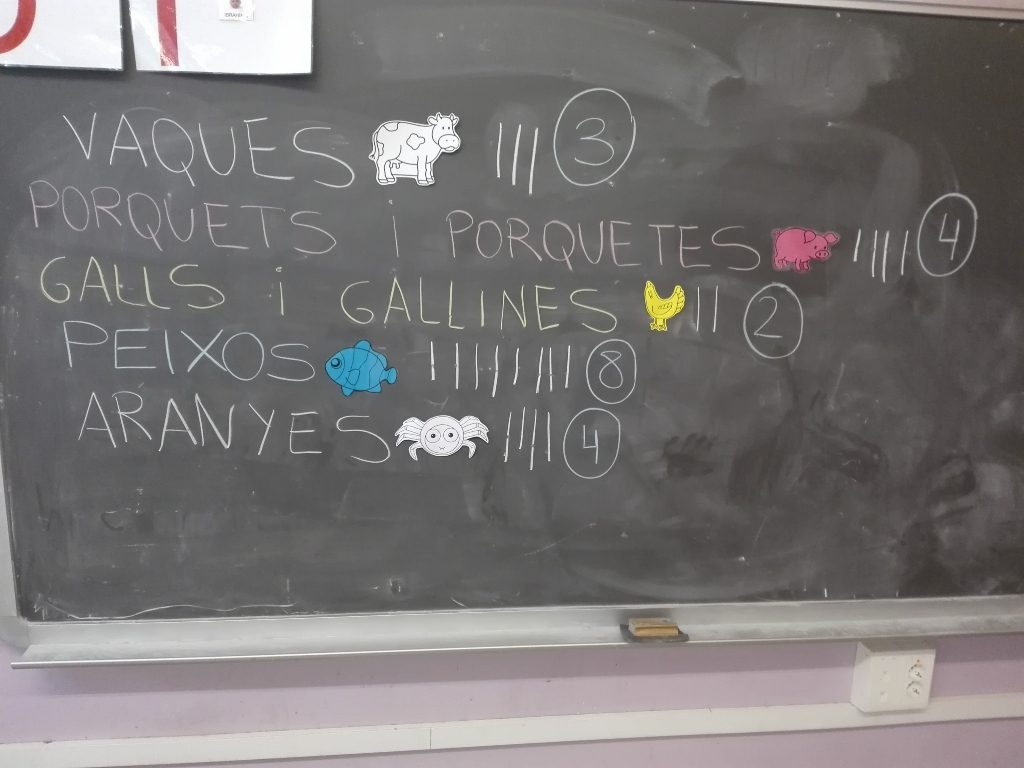 VAQUES ||| 3
PORQUETS i PORQUETES |||| 4
GALLS i GALLINES || 2
PEIXOS |||||||| 8
ARANYES |||| 4